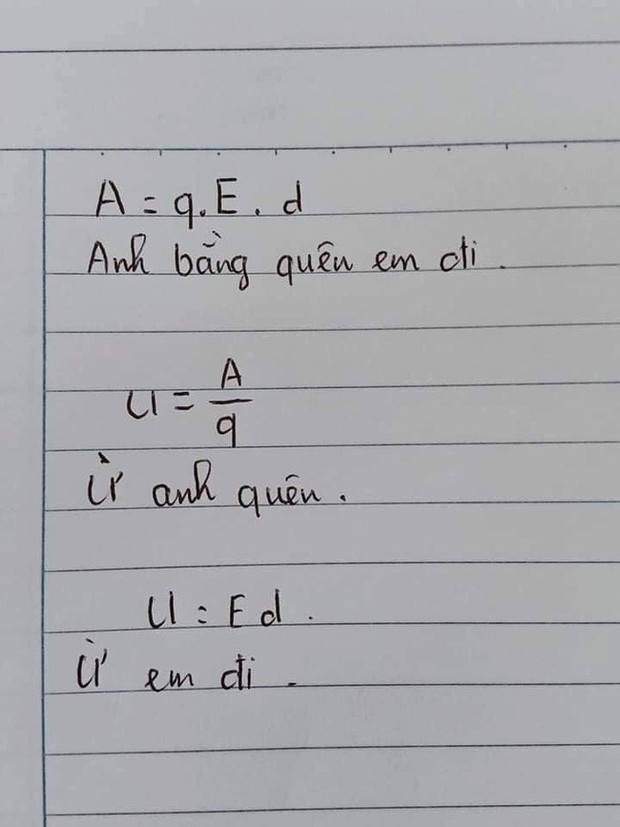 A = q.E.d
Anh bằng quên em đi.
U = A/q
Ừ anh quên.
U = Ed.
Ừ em đi.